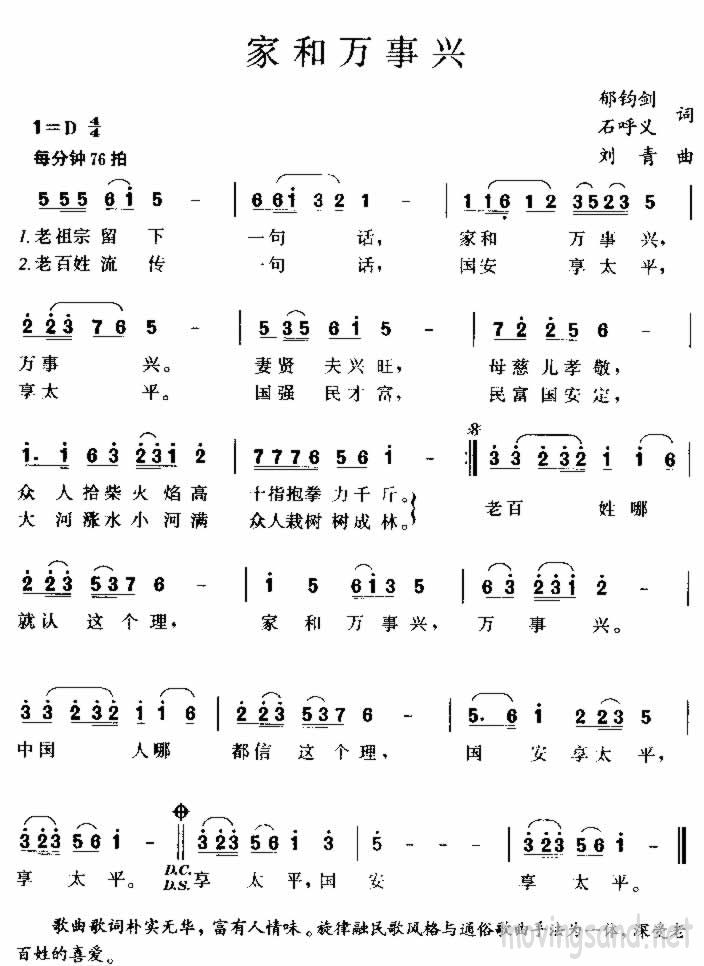 家和万事兴
郁钧剑
石呼义 词
1=D 4/4
每分钟76拍
刘青 曲
555 6i 5 - | 66i 32 1 - | 116 12 3523 5 |
1.老祖宗留下 一句话, 家和万事兴,
2.老百姓流传 一句话, 国安享太平,
2 23 76 5 - | 535 6i 5 - | 72 25 6 - |
万事兴。 妻贤夫兴旺, 母慈儿孝敬,
享太平。 国强民才富, 民富国安定,
i. i 63 23i 2 | 7776 56 i - :‖ 33 232 i i6 |
众人拾柴火焰高 十指抱拳力千斤。 老百姓哪
大河涨水小河满 众人栽树树成林。
2 23 537 6 - | i 5 6i3 5 | 63 23i 2 - |
就认这个理, 家和万事兴, 万事兴。
33 232 i i6 | 2 23 537 6 - | 5. 6 i 2 223 5 |
中国人哪 都信这个理, 国安享太平,
323 56 i - ‖ 323 56 i 3 | 5 - - - | 323 56 i - ‖
享太平。 D.C. D.S. 享太平,国安 享太平。
歌曲歌词朴实无华,富有人情味。旋律融民歌风格与通俗歌曲手法为一体,深受老
百姓的喜爱。
movingsand.net